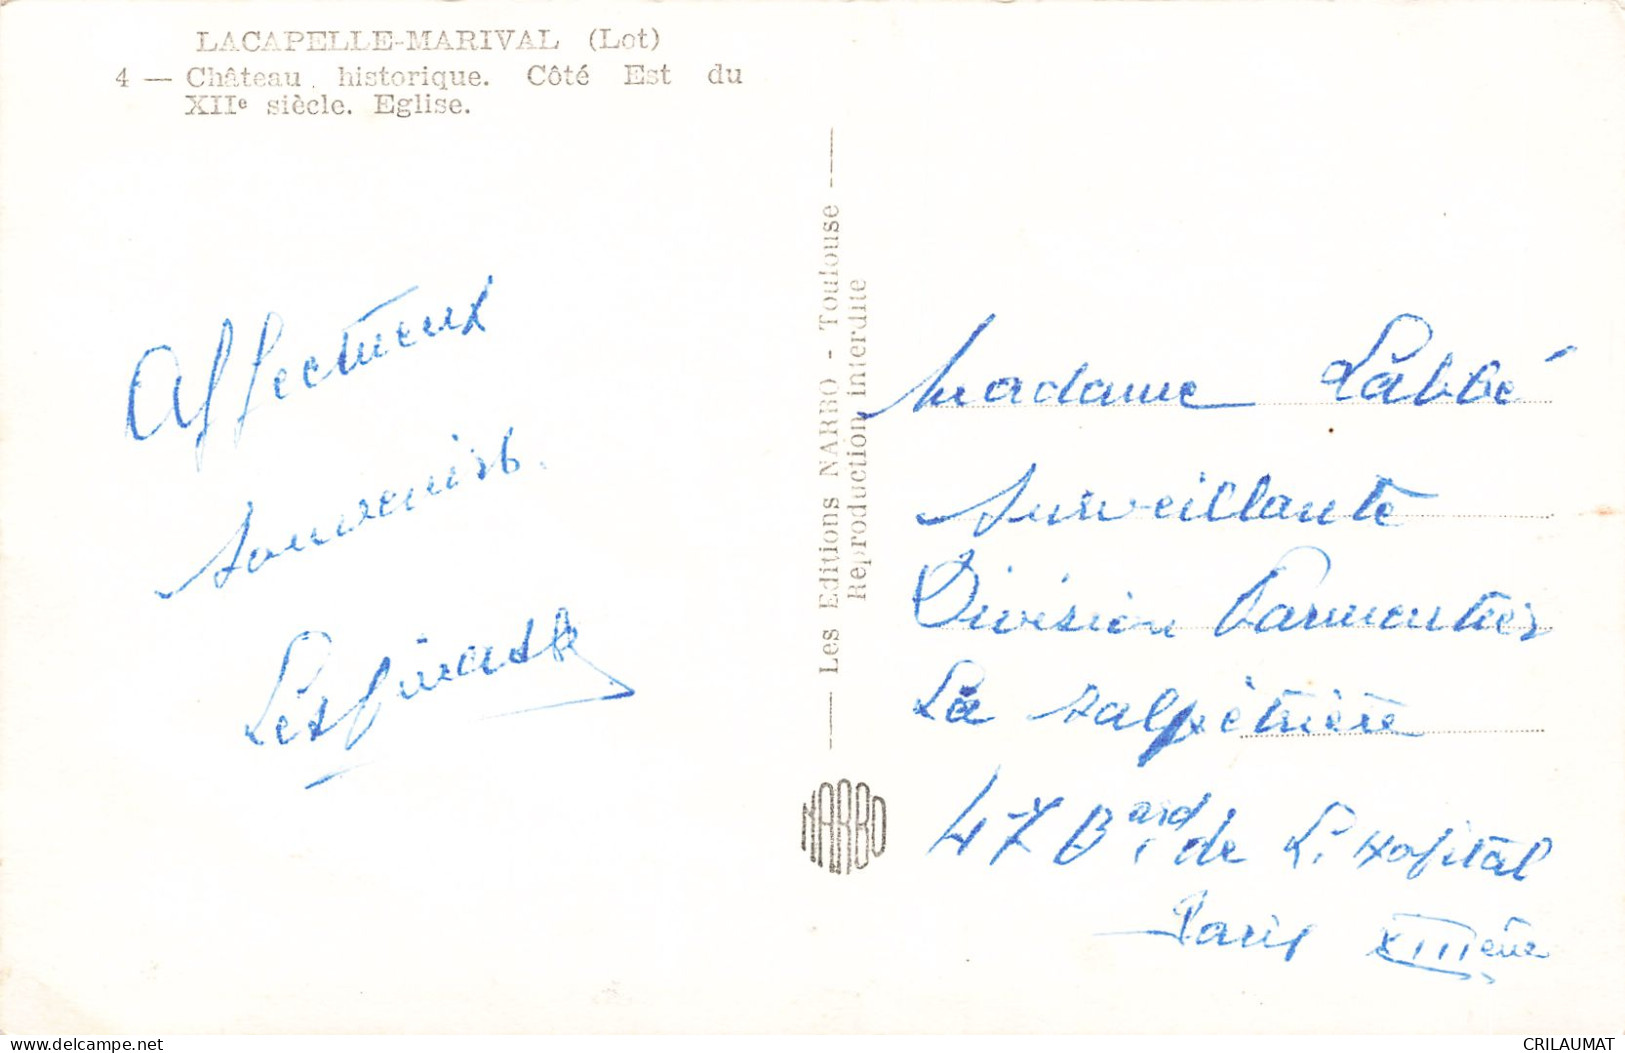 LACAPELLE-MARIVAL (Lot)
4 — Château. historique. Côté Est du
XIIe siècle. Eglise.
Affectueux
Souvenirs.
— Les Editions NARBO - Toulouse —
Reproduction interdite
NARBO
Madame Labbé
Surveillante
Division Parmentier
La Salpêtrière
47 Bard de L'Hopital
Paris XIIIème
www.delcampe.net
CRILAUMAT